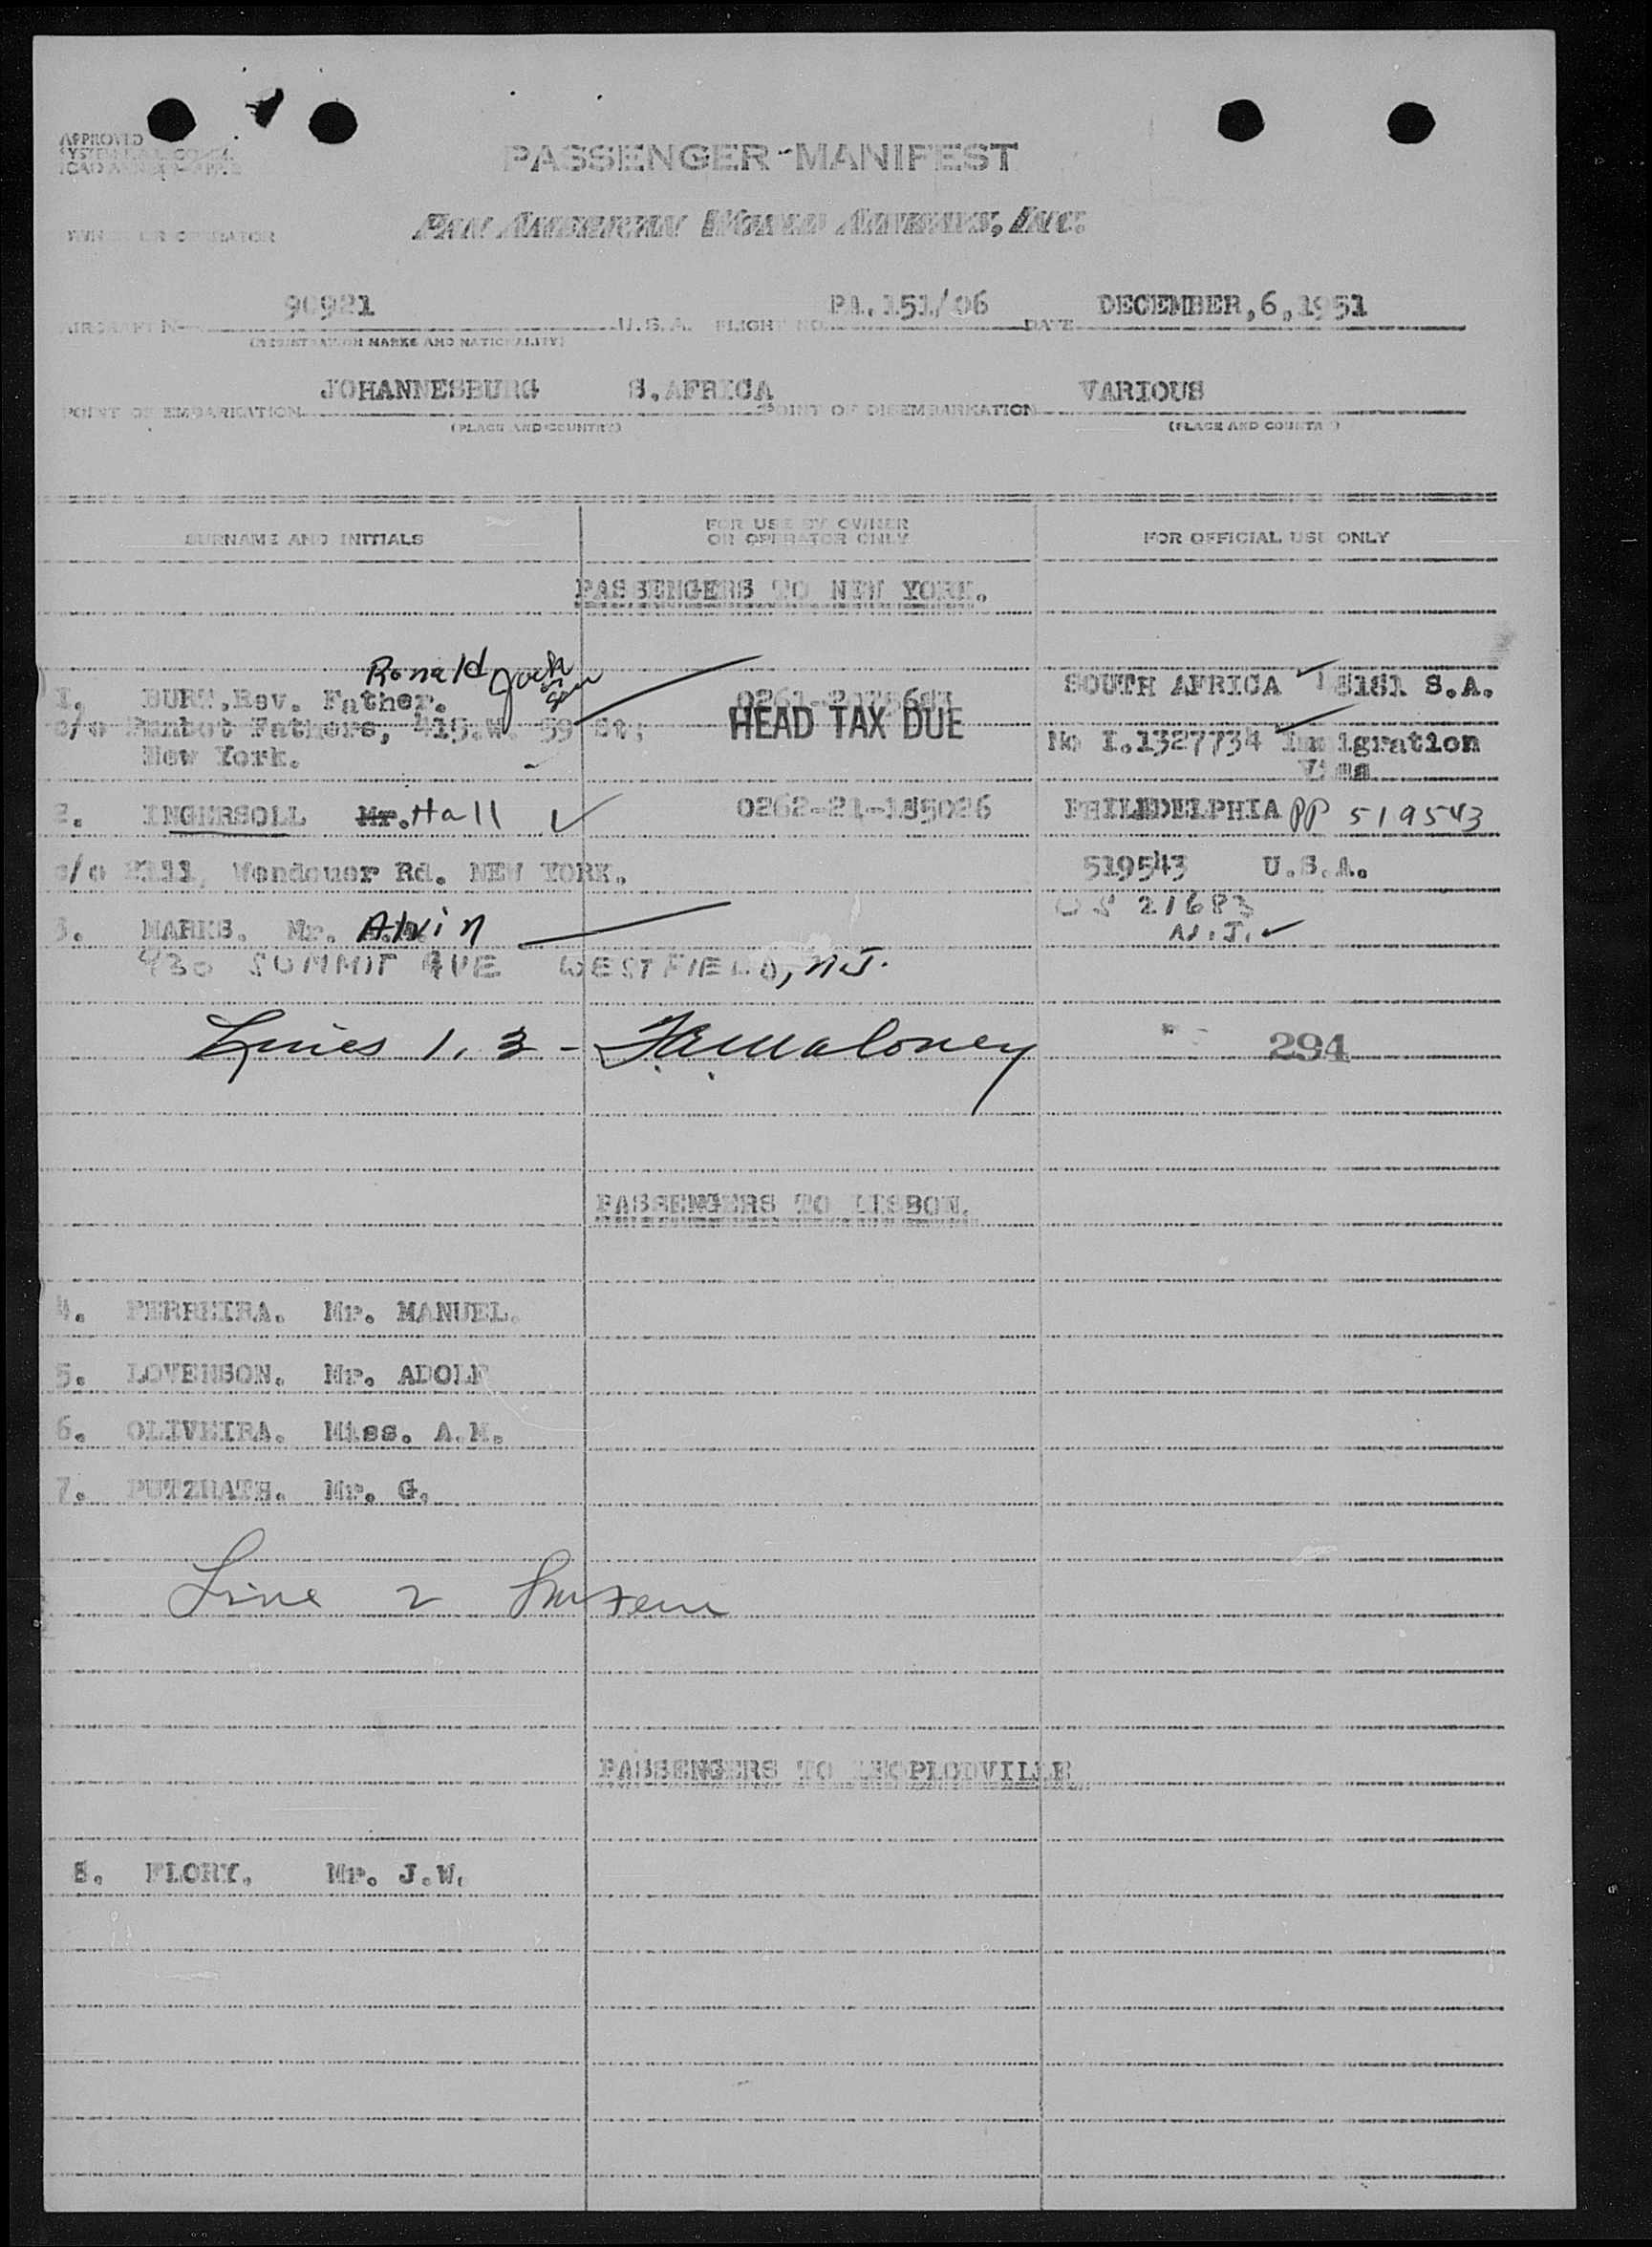 APPROVED
PASSENGER MANIFEST
PAN AMERICAN WORLD AIRWAYS, INC.
OWNER OR OPERATOR
90921 PA.151/06 DECEMBER,6,1951
AIRCRAFT No U.S.A. FLIGHT NO. DATE
(REGISTRATION MARKS AND NATIONALITY)
JOHANNESBURG S.AFRICA VARIOUS
POINT OF EMBARKATION POINT OF DISEMBARKATION
(PLACE AND COUNTRY) (PLACE AND COUNTRY)
SURNAME AND INITIALS FOR USE BY OWNER OR OPERATOR ONLY FOR OFFICIAL USE ONLY
PASSENGERS TO NEW YORK.
Ronald
1. Rev. Father. SOUTH AFRICA S.A.
c/o Fathers, 415.W. 59 St; HEAD TAX DUE No I.1327734 Immigration
New York. Visa
2. INGERSOLL Mr. Hall 0262-21- PHILEDELPHIA PP 519543
c/o Wendouer Rd. NEW YORK. 519543 U.S.A.
3. MARKS. Mr. Alvin 21683
N.J.
930 SUMMIT AVE WESTFIELD, NJ.
Lines 1, 3 - Maloney 294
PASSENGERS TO LISBON.
4. FERREIRA. Mr. MANUEL.
5. LOVENSON. Mr. ADOLF
6. OLIVEIRA. Miss. A.M.
7. Mr. G.
Line 2
PASSENGERS TO LEOPLODVILLE
8. FLORY. Mr. J.W.